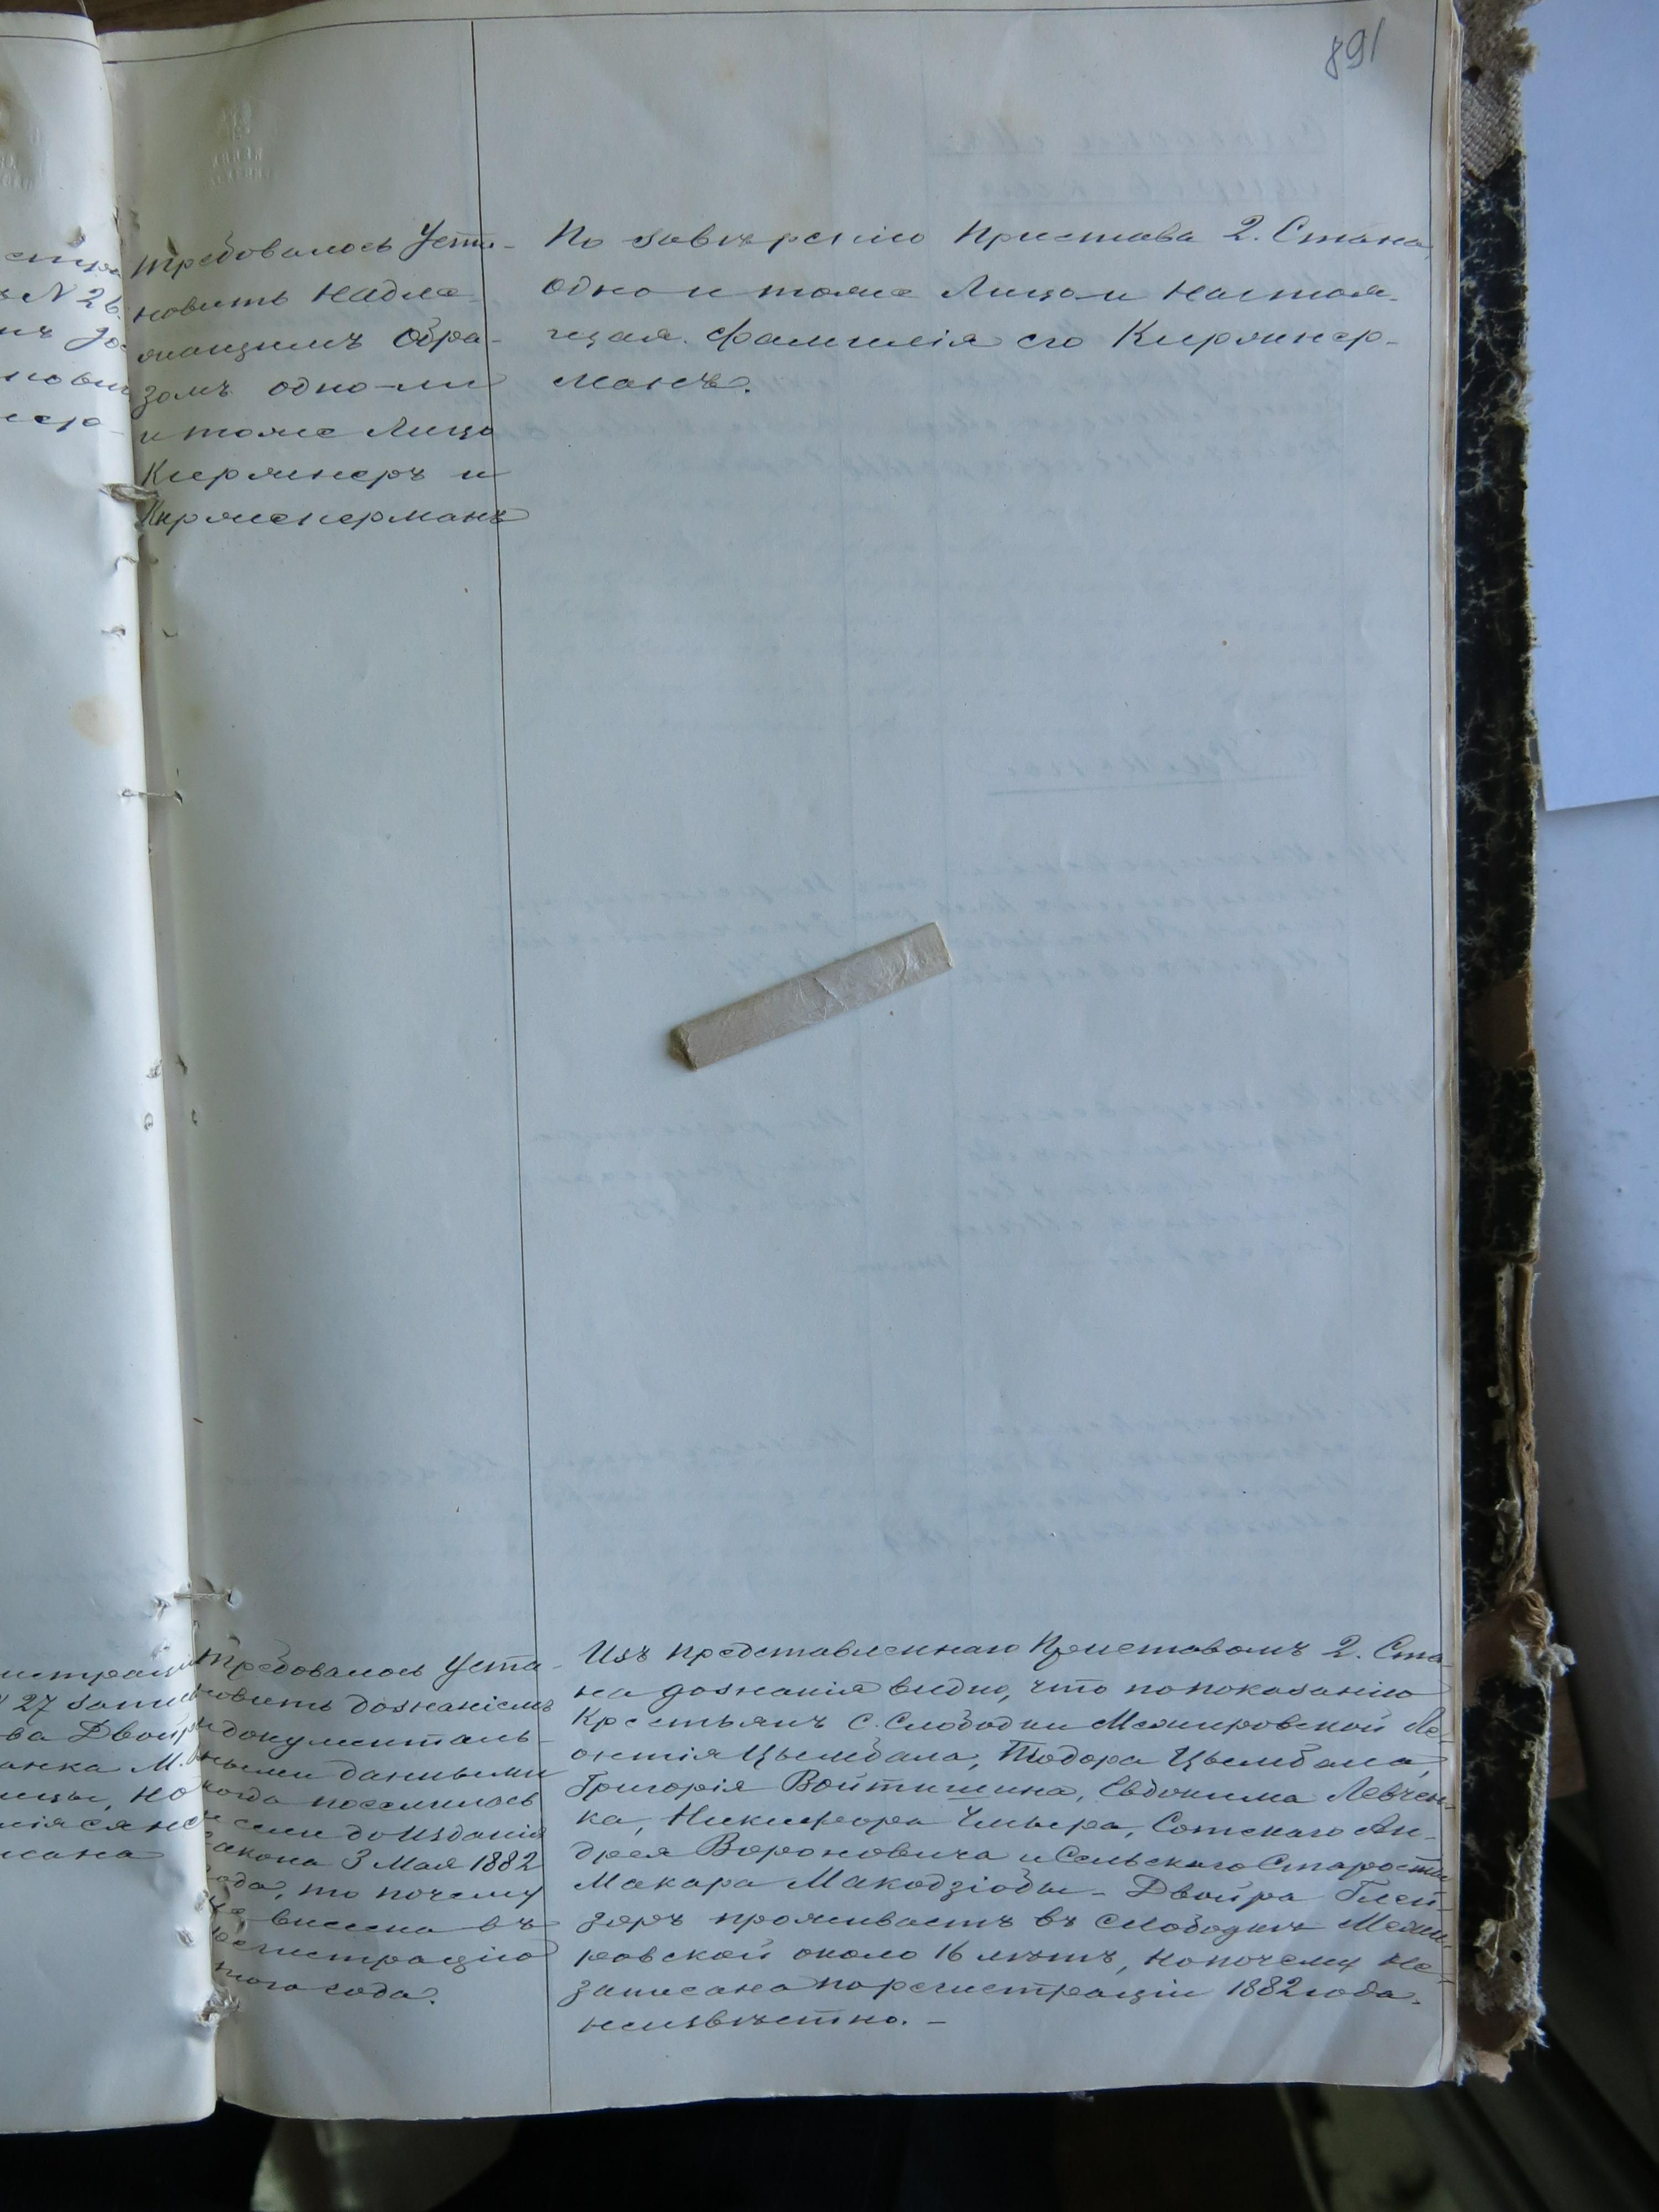 891
Требовалось Уста-
новить надле-
жащимъ обра-
зомъ одно-ли
и тоже Лицо
Киржнеръ и
Киржнерманъ
По завѣренію Пристава 2. Стана,
одно и тоже Лицо и настоя-
щая фамилія его Киржнер-
манъ.
Требовалось Уста-
новить дознаніемъ
и документаль-
ными данными
когда поселилась
и если до Изданія
Закона 3 Мая 1882
года, то почему
не внесена въ
регистрацію
того года.
Изъ представленнаго Приставомъ 2. Ста-
на дознанія видно, что по показанію
Крестьянъ С. Слободки Межировской Ле-
онтія Цымбала, Тодора Цымбала,
Григорія Войтишина, Евдокима Левчен-
ка, Никифора Чмыра, Сотскаго Ан-
дрея Вороновича и Сельскаго Старосты
Макара Макодзіобы - Двойра Глей-
зеръ проживаетъ въ Слободкѣ Межи-
ровской около 16 лѣтъ, но почему не-
записана по регистраціи 1882 года.
неизвѣстно. -